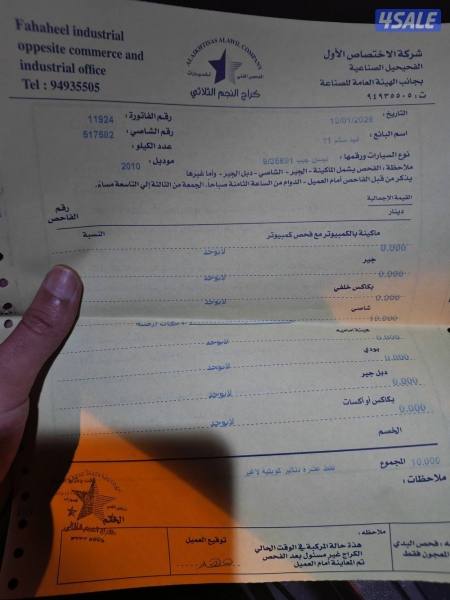 4SALE
Fahaheel industrial
oppesite commerce and
industrial office
Tel : 94935505
ALAIKHTISAS ALAWIL COMPANY
كراج النجم الثلاثي
شركة الاختصاص الأول
الفحيحيل الصناعية
بجانب الهيئة العامة للصناعة
ت: ٩٤٩٣٥٥٠٥
التاريخ: 10/01/2026
رقم الفاتورة: 11924
اسم البائع:
رقم الشاصي: 517502
عدد الكيلو:
نوع السيارات ورقمها: نيسان جيب 9/26891
موديل: 2010
ملاحظة: الفحص يشمل الماكينة - الجير - الشاصي - دبل الجير - وأما غيرها
يذكر من قبل الفاحص أمام العميل - الدوام من الساعة الثامنة صباحاً. الجمعة من الثالثة إلى التاسعة مساءً.
القيمة الإجمالية
دينار
رقم الفاحص
ماكينة بالكمبيوتر مع فحص كمبيوتر
النسبة
0.000
لايوجد
جير
0.000
لايوجد
بكاكس خلفي
0.000
لايوجد
شاصي
10.000
هيئة أمامية
0.000
لايوجد
بودي
0.000
لايوجد
دبل جير
0.000
لايوجد
بكاكس أو اكسات
0.000
لايوجد
الخصم
المجموع 10.000
فقط عشرة دنانير كويتية لاغير
ملاحظات:
الختم
توقيع العميل
ملاحظه:
هذة حالة المركبة في الوقت الحالي
الكراج غير مسئول بعد الفحص
تم المعاينة أمام العميل
فحص البدي
المعجون فقط